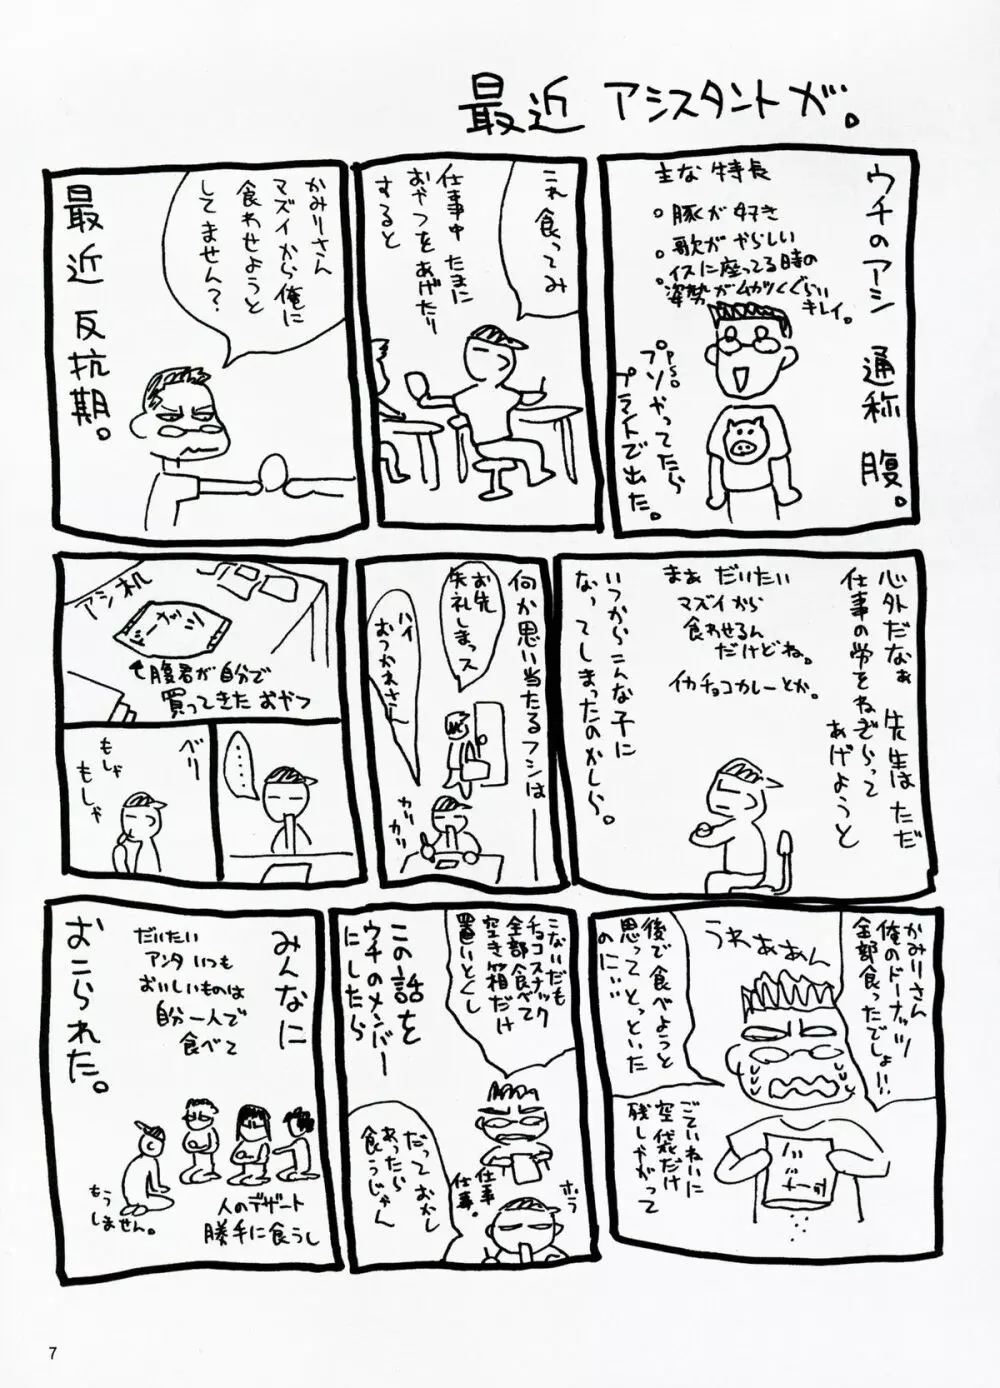 最近 アシスタントが。
ウチのアシ 通称 腹。
主な特長
。豚が好き
。歌がやらしい
。イスに座ってる時の
姿勢がムカツくぐらい
キレイ。
P.S。
プソやってたら
プラントで出た。
これ食ってみ
仕事中 たまに
おやつをあげたり
すると
かみりさん
マズイから俺に
食わせようと
してません?
最近 反抗期。
心外だなぁ 先生はただ
仕事の労をねぎらって
あげようと
まぁ だいたい
マズイから
食わせるん
だけどね。
イカチョコカレーとか。
いつからこんな子に
なってしまったのかしら。
何か思い当たるフシは――
お先
失礼しまっス
ハイ
おつかれさん
カリ
カリ
アシ机
シガー
腹君が自分で
買ってきた おやつ
・・・・・
べリ
もしゃ
もしゃ
かみりさん
俺のドーナッツ
全部食ったでしょ!!
うわぁぁん
後で食べようと
思って とっといた
のに・・・
ごていねいに
空袋だけ
残しやがって
こないだも
チョコスナック
全部食べて
空き箱だけ
置いとくし
この話を
ウチのメンバー
にしたら
だって おかし
あったら
食うじゃん
ホラ
仕事
仕事。
みんなに
おこられた。
だいたい
アンタ いつも
おいしいものは
自分一人で
食べて
人のデザート
勝手に食うし
もう
しません。
7